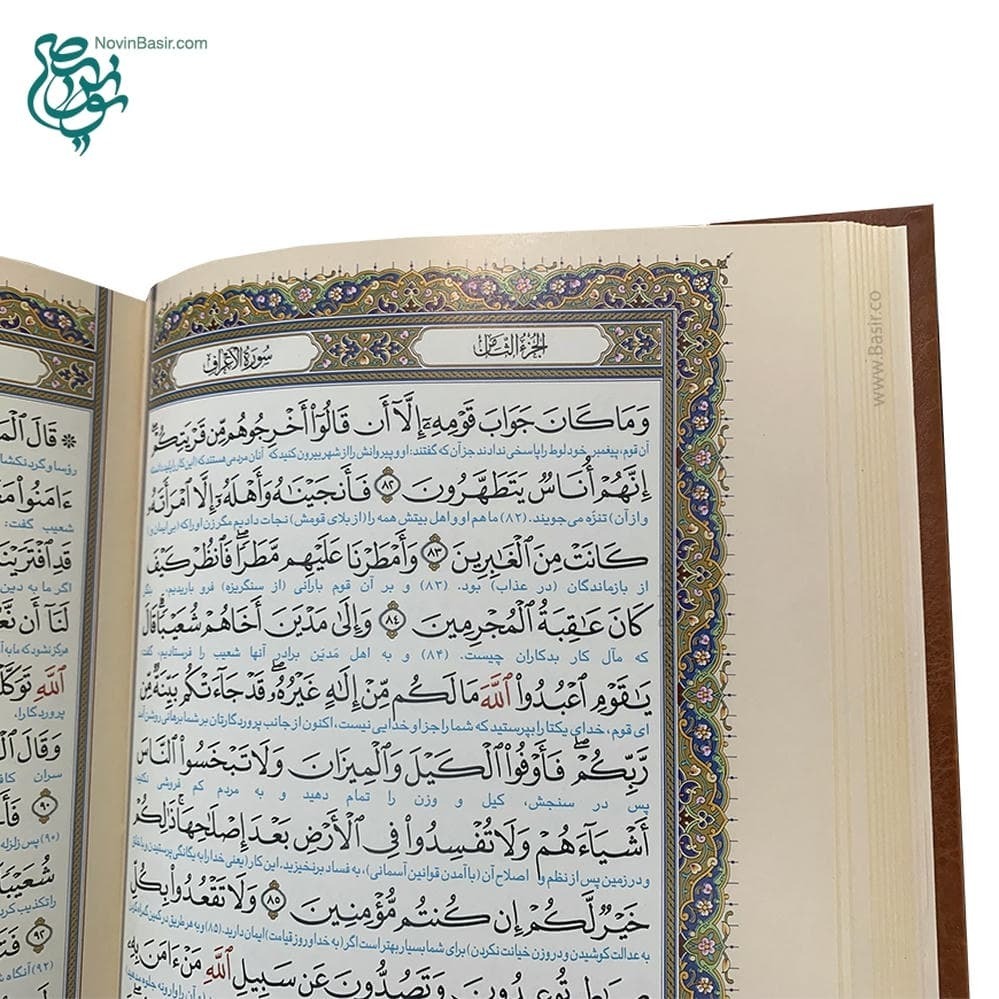 NovinBasir.com
نوین بصیر
www.Basir.co
الجزء الثامن
سورة الأعراف
وَمَا كَانَ جَوَابَ قَوْمِهِۦٓ إِلَّآ أَن قَالُوٓا۟ أَخْرِجُوهُم مِّن قَرْيَتِكُمْ
آن قوم، پیغمبر خود لوط را پاسخی ندادند جز آن که گفتند: او و پیروانش را از شهر بیرون کنید که آنان مردمی هستند که
إِنَّهُمْ أُنَاسٌ يَتَطَهَّرُونَ ﴿٨٢﴾ فَأَنجَيْنَـٰهُ وَأَهْلَهُۥٓ إِلَّا ٱمْرَأَتَهُۥ
و از آن) تنزّه می‌جویند. (۸۲) ما هم او و اهل بیتش همه را (از بلای قومش) نجات دادیم مگر زن او را که (بی‌ایمان و)
كَانَتْ مِنَ ٱلْغَـٰبِرِينَ ﴿٨٣﴾ وَأَمْطَرْنَا عَلَيْهِم مَّطَرًا ۖ فَٱنظُرْ كَيْفَ
از بازماندگان (در عذاب) بود. (۸۳) و بر آن قوم بارانی (از سنگریزه) فرو باریدیم، بنگر
كَانَ عَـٰقِبَةُ ٱلْمُجْرِمِينَ ﴿٨٤﴾ وَإِلَىٰ مَدْيَنَ أَخَاهُمْ شُعَيْبًا ۗ قَالَ
که مآل کار بدکاران چیست. (۸۴) و به اهل مَدیَن برادر آنها شعیب را فرستادیم، گفت:
يَـٰقَوْمِ ٱعْبُدُوا۟ ٱللَّهَ مَا لَكُم مِّنْ إِلَـٰهٍ غَيْرُهُۥ ۖ قَدْ جَآءَتْكُم بَيِّنَةٌ مِّن
ای قوم، خدای یکتا را بپرستید که شما را جز او خدایی نیست، اکنون از جانب پروردگارتان بر شما برهانی روشن آمد
رَّبِّكُمْ ۖ فَأَوْفُوا۟ ٱلْكَيْلَ وَٱلْمِيزَانَ وَلَا تَبْخَسُوا۟ ٱلنَّاسَ
پس در سنجش، کیل و وزن را تمام دهید و به مردم کم فروشی نکنید
أَشْيَآءَهُمْ وَلَا تُفْسِدُوا۟ فِى ٱلْأَرْضِ بَعْدَ إِصْلَـٰحِهَا ۚ ذَٰلِكُمْ
و در زمین پس از نظم و اصلاح آن (با آمدن قوانین آسمانی)، به فساد برنخیزید. این کار (یعنی خدا را به یگانگی پرستیدن و با خلق
خَيْرٌ لَّكُمْ إِن كُنتُم مُّؤْمِنِينَ ﴿٨٥﴾ وَلَا تَقْعُدُوا۟ بِكُلِّ
به عدالت کوشیدن و در وزن خیانت نکردن) برای شما بسیار بهتر است اگر (به خدا و روز قیامت) ایمان دارید. (۸۵) و به هر طریق در کمین
صِرَٰطٍ تُوعِدُونَ وَتَصُدُّونَ عَن سَبِيلِ ٱللَّهِ مَنْ ءَامَنَ بِهِۦ
۞ قَالَ
رؤسا و گردنکشان
ءَامَنُوا۟
شعیب گفت:
قَدِ ٱفْتَرَيْنَا
اگر ما به دین
لَنَآ أَن نَّعُودَ
هرگز نشود که ما به
ٱللَّهِ تَوَكَّلْنَا
پروردگارا،
وَقَالَ
سران
﴿٩٠﴾
(۹۰) پس زلزله
شُعَيْبًا
را تکذیب
﴿٩٢﴾
(۹۲) آنگاه